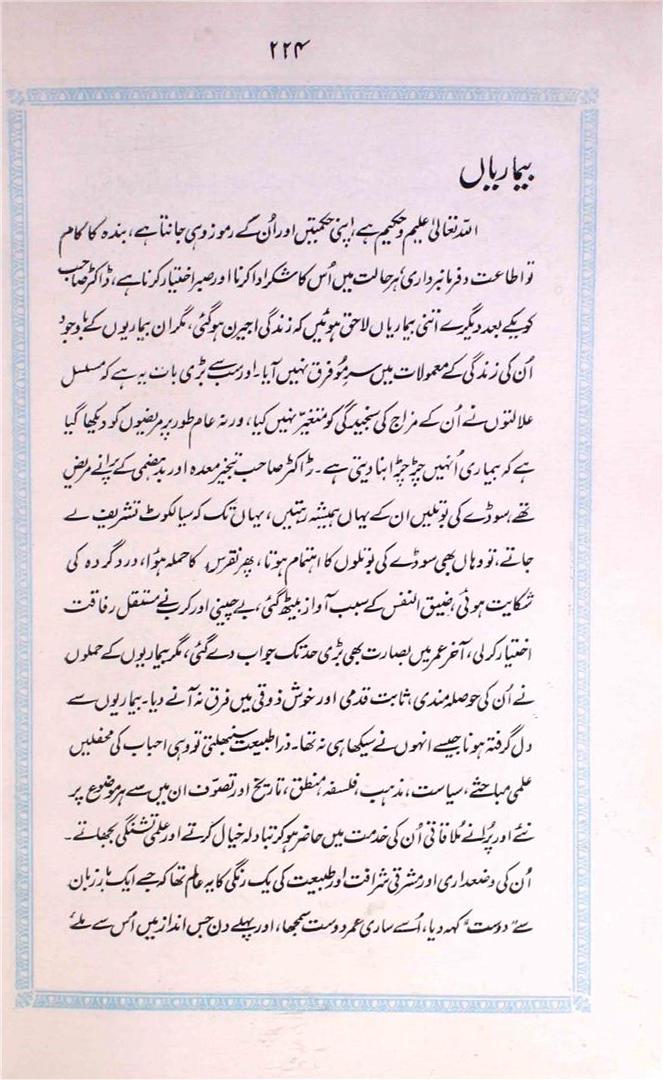 ۲۲۴
بیماریاں
اللہ تعالیٰ علیم و حکیم ہے، اپنی حکمتیں اور اُن کے رموز وہی جانتا ہے، بندہ کا کام
تو اطاعت و فرمانبرداری، ہر حالت میں اُس کا شکر ادا کرنا اور صبر اختیار کرنا ہے، ڈاکٹر صاحب
کو یکے بعد دیگرے اتنی بیماریاں لاحق ہوئیں کہ زندگی اجیرن ہوگئی، مگر ان بیماریوں کے باوجود
اُن کی زندگی کے معمولات میں سرِ مُو فرق نہیں آیا۔ اور سب سے بڑی بات یہ ہے کہ مسلسل
علالتوں نے اُن کے مزاج کی سنجیدگی کو متغیّر نہیں کیا، ورنہ عام طور پر مریضوں کو دیکھا گیا
ہے کہ بیماری اُنہیں چڑچڑا بنا دیتی ہے۔ ڈاکٹر صاحب تبخیر معدہ اور بدہضمی کے پُرانے مریض
تھے، سوڈے کی بوتلیں ان کے یہاں ہمیشہ رہتیں، یہاں تک کہ سیالکوٹ تشریف لے
جاتے، تو وہاں بھی سوڈے کی بوتلوں کا اہتمام ہوتا، پھر نقرس کا حملہ ہُوا، درد گردہ کی
شکایت ہوئی، ضیق النفس کے سبب آواز بیٹھ گئی، بے چینی اور کرب نے مستقل رفاقت
اختیار کرلی، آخر عمر میں بصارت بھی بڑی حد تک جواب دے گئی، مگر بیماریوں کے حملوں
نے اُن کی حوصلہ مندی، ثابت قدمی اور خوش ذوقی میں فرق نہ آنے دیا۔ بیماریوں سے
دل گرفتہ ہونا جیسے انہوں نے سیکھا ہی نہ تھا۔ ذرا طبیعت سنبھلتی تو وہی احباب کی محفلیں
علمی مباحثے، سیاست، مذہب، فلسفہ، منطق، تاریخ اور تصوّف ان میں سے ہر موضوع پر
نئے اور پُرانے مُلاقاتی اُن کی خدمت میں حاضر ہوکر تبادلہ خیال کرتے اور علمی تشنگی بجھاتے۔
اُن کی وضعداری اور مشرقی شرافت اور طبیعت کی یک رنگی کا یہ عالم تھا کہ جسے ایک بار زبان
سے "دوست" کہہ دیا، اُسے ساری عمر دوست سمجھا، اور پہلے دن جس انداز میں اُس سے ملے